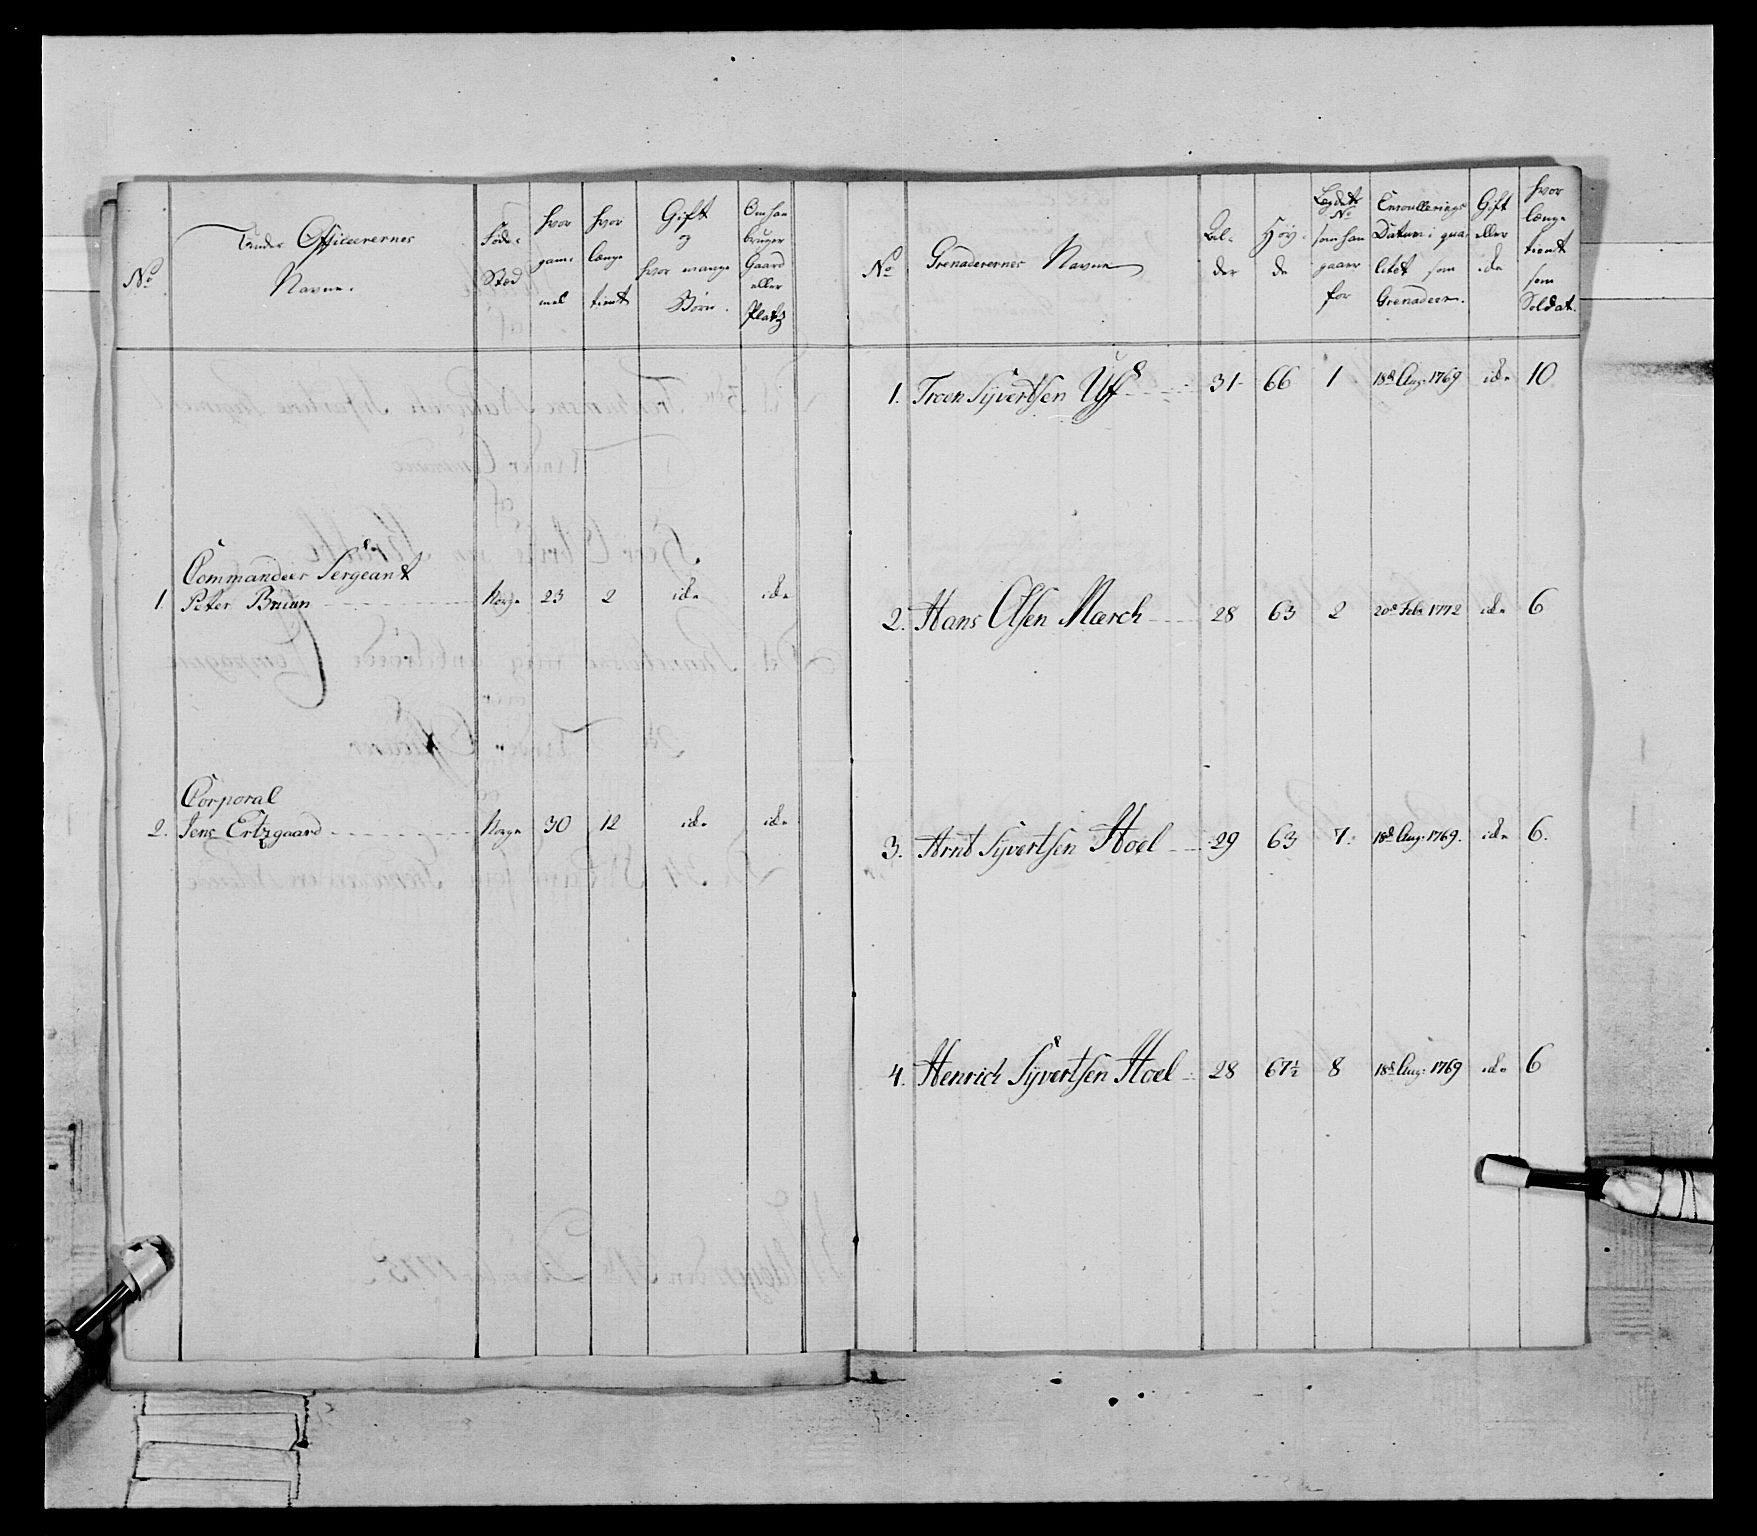 No
Under Officeerernes
Navne.
Føde-
Stæd
hvor
gam-
mel
hvor
længe
tient
Gift
og
hvor mange
Børn.
Om han
bruger
Gaard
eller
Platz
1. Commandeer Sergeant
Peter Bruun Norge 23 2 ide ide
Corporal
2. Jens Ertzgaard Norge 30 12 ide ide
No
Grenaderernes Navne
Al-
der
Høy-
de
Legdets
No
som han
gaaer
for
Enroullerings
Datum i qua-
litet som
Grenadeer.
Gift
eller
ide
hvor
længe
tient
som
Soldat.
1. Troen Syvertsen Uff 31 66 1 18d Aug. 1769 ide 10
2. Hans Olsen Mærch 28 63 2 20d Febr 1772 ide 6
3. Arnt Syvertsen Hoel 29 63 7. 18d Aug. 1769. ide 6.
4. Henrich Syvertsen Hoel 28 67½ 8 18d Aug. 1769 ide 6